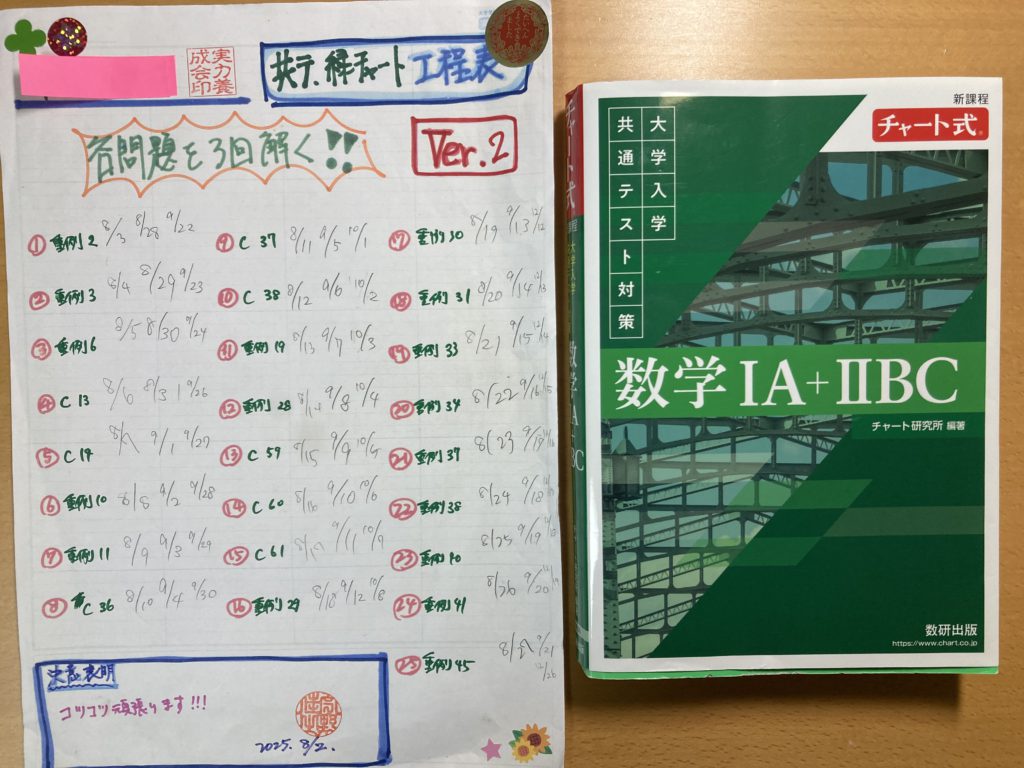 実力養
成会印
共テ、緑チャート 工程表
各問題を3回解く!!
Ver.2
① 重例2 8/3 8/28 9/22
② 重例3 8/4 8/29 9/23
③ 重例6 8/5 8/30 9/24
④ C 13 8/6 8/31 9/26
⑤ C 17 9/1 9/27
⑥ 重例10 8/8 9/2 9/28
⑦ 重例11 8/9 9/3 9/29
⑧ C 36 8/10 9/4 9/30
⑨ C 37 8/11 9/5 10/1
⑩ C 38 8/12 9/6 10/2
⑪ 重例19 8/13 9/7 10/3
⑫ 重例28 8/14 9/8 10/4
⑬ C 59 8/15 9/9
⑭ C 60 8/16 9/10 10/6
⑮ C 61 9/11
⑯ 重例29 8/18 9/12 10/8
⑰ 重例30 8/19 9/13 12/12
⑱ 重例31 8/20 9/14 12/13
⑲ 重例33 8/21 9/15 12/14
⑳ 重例34 8/22 9/16
㉑ 重例37 8/23
㉒ 重例38 8/24 9/18
㉓ 重例40 8/25 9/19
㉔ 重例41 8/26 9/20
㉕ 重例45 9/21 12/26
決意表明
コツコツ頑張ります!!!
2025. 8/2.
新課程
チャート式
大学入学
共通テスト対策
数学ⅠA+ⅡBC
チャート研究所 編著
数研出版
https://www.chart.co.jp
チャート式
数学ⅠA
BC